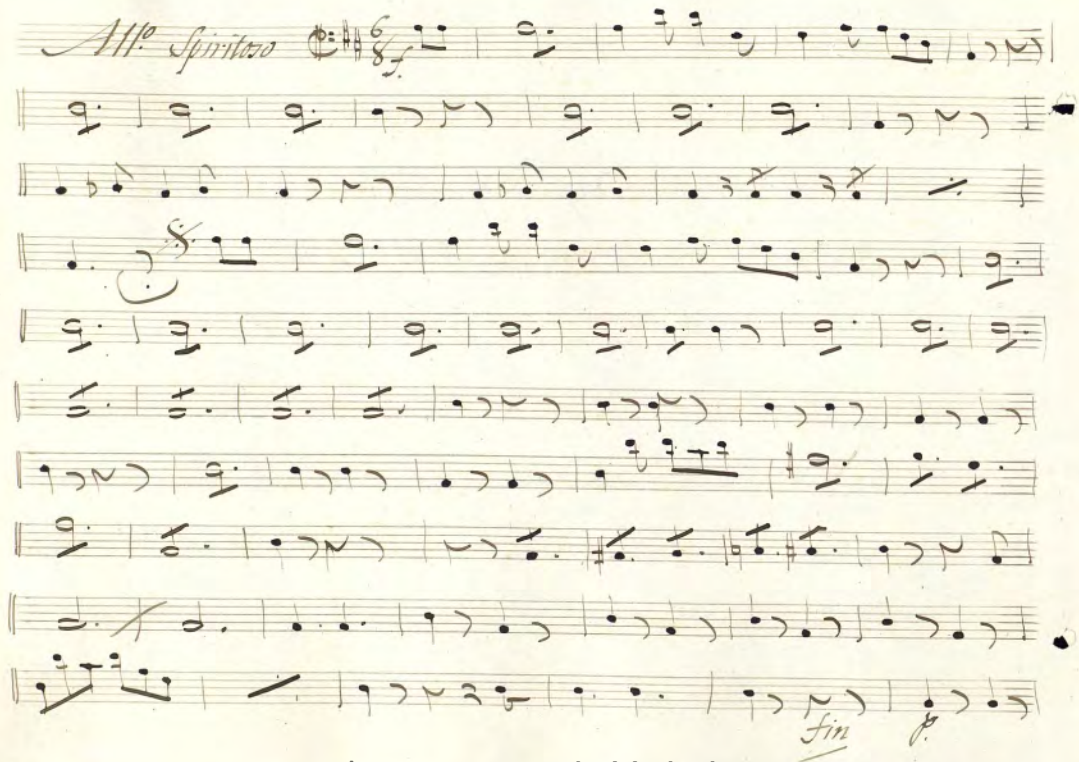 All.º Spiritoso 6/8 f.
fin p.